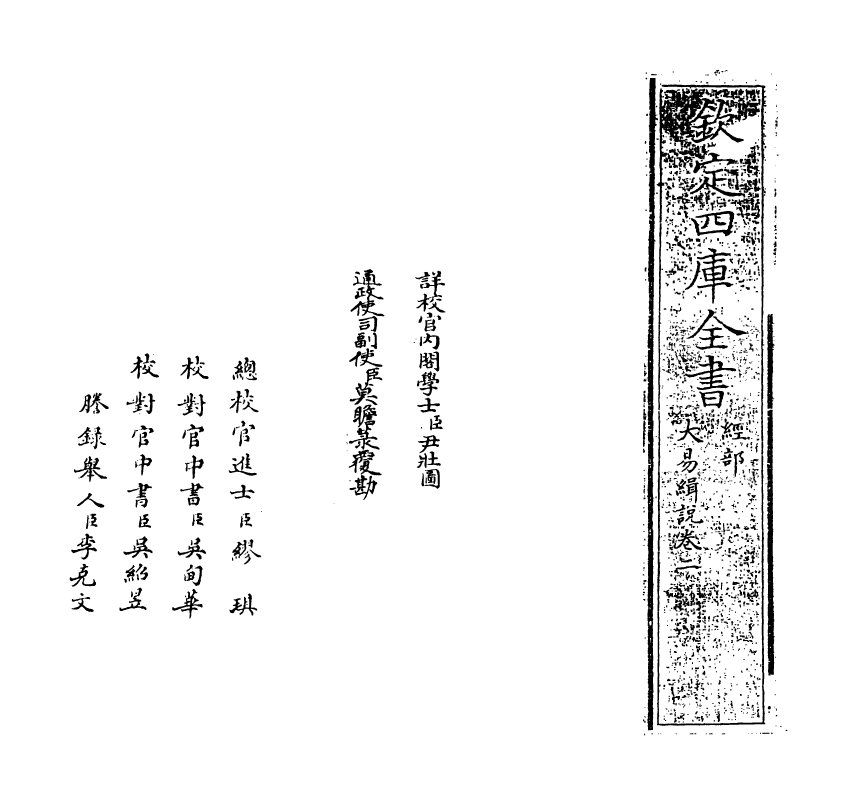 欽定四庫全書
經部
大易緝說卷一
詳校官內閣學士臣尹壯圖
通政使司副使臣莫瞻菉覆勘
總校官進士臣繆琪
校對官中書臣吳甸華
校對官中書臣吳紹昱
謄錄舉人臣李克文